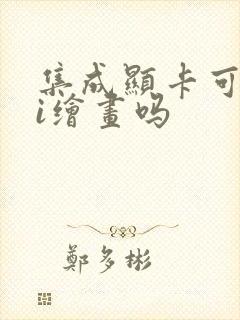 集成顯卡可
i繪畫吗
鄭多彬